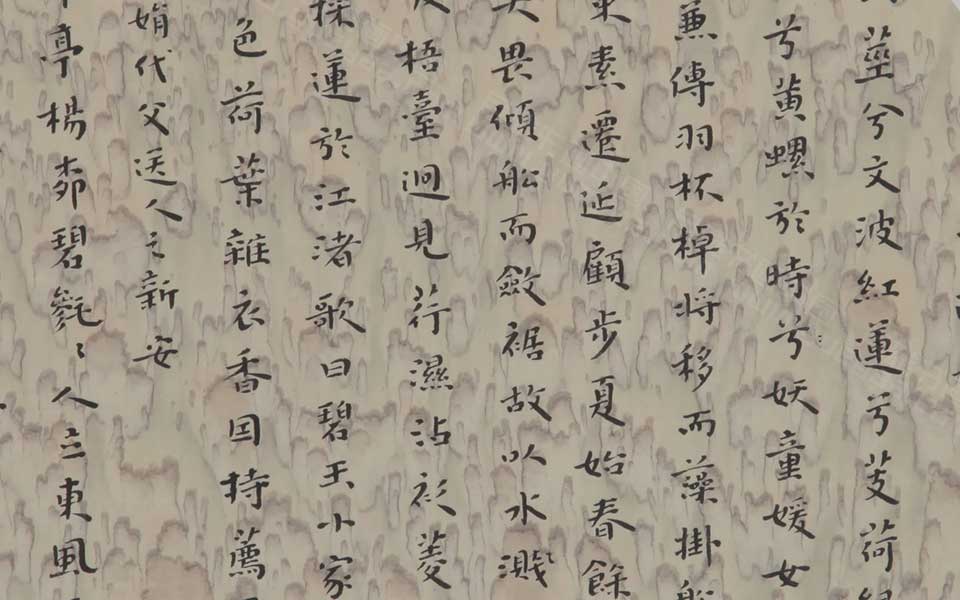 莖兮文波紅蓮兮芰荷
兮黄螺於時兮妖童媛女
兼傳羽杯棹將移而藻掛
束素遷延顧步夏始春餘
畏傾船而斂裾故以水濺
梧臺迥見荇濕沾衫菱
採蓮於江渚歌曰碧玉小家
色荷葉雜衣香因持薦
娟代父送人之新安
亭楊桺碧毿々人立東風